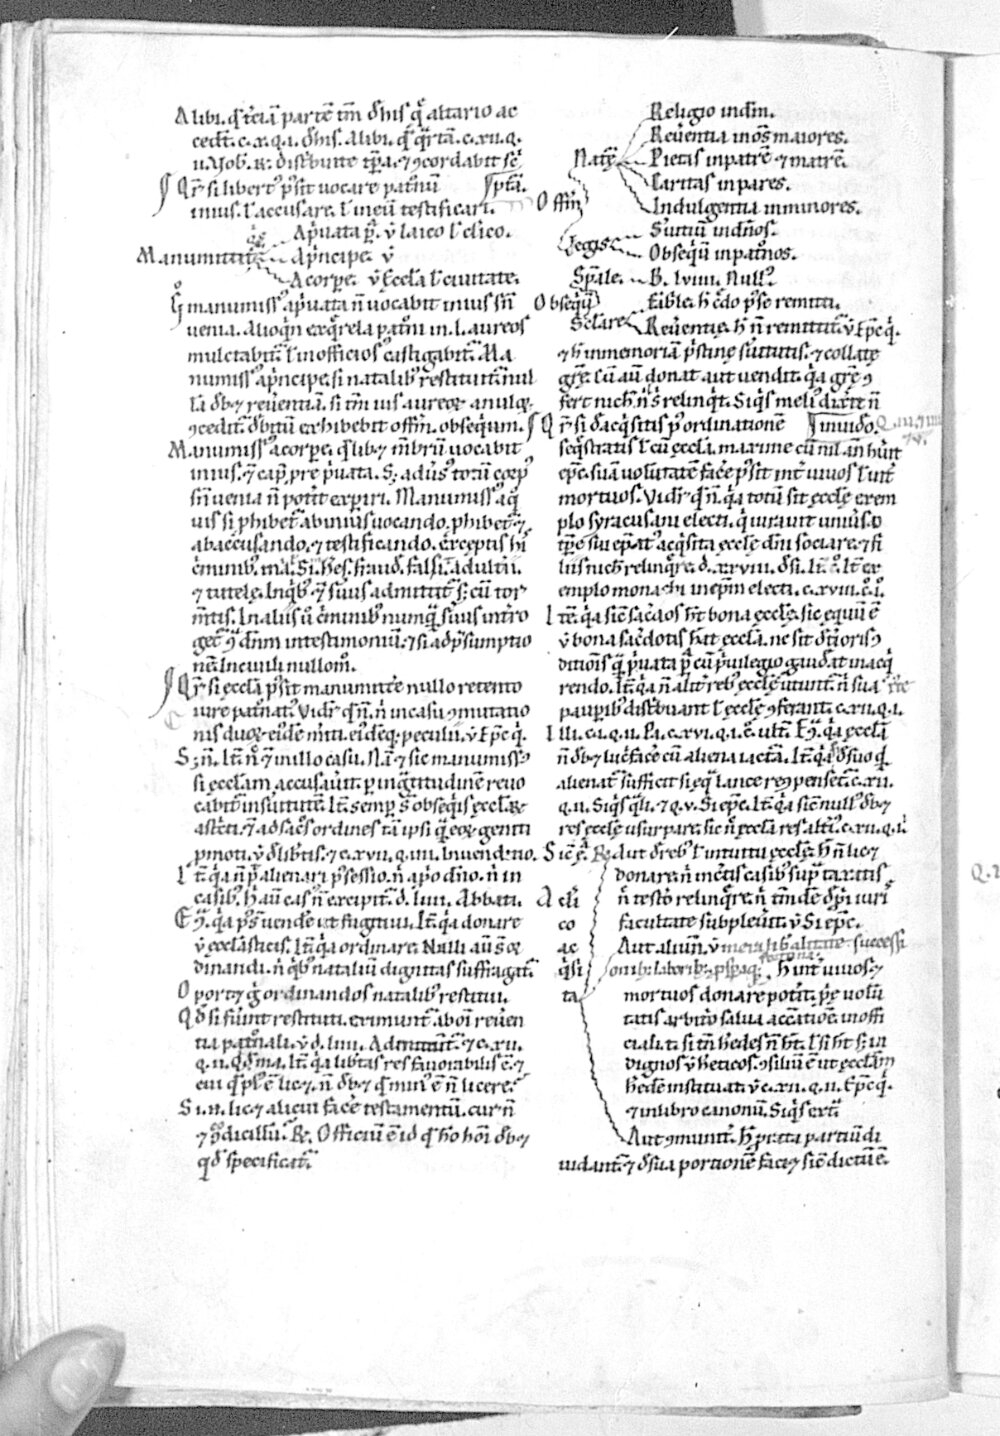 Alibi. q̄ t̓ciā partē tm̄ d̓ his q̄ altario ac
cedt̄. c. x. q. i. d̓ his. Alibi. q̄ q̄rtā. c. xii. q.
ii. Nob. R. distribuite tp̄a. ⁊ ꝯcordabit
Qr̄ si libert᷒ p̓sit uocare pat̓nū
in ius. ł accusare. ł in eū testificari.
Ap̓uata p̄. v̓ laico ł cl̓ico.
Manumittit᷑ Ap̓ncipe. v̓
A corpe. v̓ Eccl̓a ł ciuitate.
manumiss᷒ ap̓uata n̄ uocabit in ius sn̄
uenia. Alioq̄n ex q̄rela pat̓ni in .l. aureos
mulctabit᷑ ł in officios᷒ castigabit᷑. Ma
numiss᷒ ap̓ncipe. si natalib᷒ restitut᷑ nul
lā db̓⁊ reuerentiā. si tm̄ ius aureoꝝ anuloꝝ
ꝯcedit᷑ d̓bitū exhibebit offm̄. obsequiū.
Manumiss᷒ a corpe. q̄lib⁊ mb̄rū uocabit
in ius. ⁊ cap̓ p̓re p̓uata. S; adūs᷒ totū corp᷒
sn̄ uenia n̄ pot̓it experiri. Manumiss᷒ a q̄
uis si phibet᷑ ab in ius uocando. phibet᷑ ⁊
ab accusando. ⁊ testificando. Exceptis
c̓minib᷒ ma. Si. hes. fraud. falsi. adult̓ii.
⁊ tutele. In q̄b᷒ ⁊ s̓uus admittit᷑ s; cū tor
m̄tis. In aliis ū c̓minib᷒ numq̄ s̓uus int̓ro
get᷑ ꝯ dn̄m in testimoniū. ⁊ si ad p̓sumptio
nē. In ciuili nullom̓.
Qr̄ si eccl̓a p̓sit manumitt̓e nullo retento
iure pat̓nat᷒. Vidr̄ q̓ n̄. n̓ in casu ꝯmutatio
nis duoꝝ. eidē mt̓i. eidēq; peculii. v̓ Ep̄c q̄.
S; n̄. It̄ n̓ ⁊ in illo casu. Nā ⁊ sic manumissꝰ
si eccl̓am accusauit. p̱ ingratitudinē reuo
cabit᷑ in s̓uitutē. It̄ semp̱ s̓ obsequiis eccl̓e
ast̓cti. ⁊ ad sac̓os ordines tā ipsi q̄ eoꝝ geniti
p̓moti. v̓ d̓ lib̓tis. ⁊ c. xvii. q. iiii. Inuend̓tio.
It̄ q̄a n̄ p̄ alienari p̓sessio. n̓ ap̓o dn̄o. n̓ in
casib᷒. h̓ aū cas᷒ n̄ excipit᷑. d. liiii. Abbati.
Eꝯ. q̄a p̓s᷒ uende ut fugitiui. It̄ q̄a donare
v̓ eccl̓asticis. It̄ q̄a ordinare. Nulli aū s̓ or
dinandi. n̓ q̄b᷒ nataliū dignitas suffragat᷑.
Oport⁊ g̓ ordinandos natalib᷒ restitui.
Qd̓ si fuint restituti. eximunt᷑ aboī reuen
tia pat̓nali. v̓ d. liiii. Admittunt᷑ ⁊ c. xii.
q. ii. Qd̓ma. It̄ q̄a lib̓tas res fauorabilis ē. ⁊
cui q̓ pl᷒ ē lic⁊. n̄ db̓⁊ q̓ min᷒ ē n̄ licere.
Si. n. lic⁊ alicui facē testamentū. cur n̄
⁊ ꝯdicillū. R. Officiū ē id q̓ ho hoi db̓⁊
qd̓ specificat᷑.
Religio in dm̄.
Reu̓entia in oēs maiores.
Nat̄e Pietas in patrē ⁊ matrē.
Caritas in pares.
Offm̄ Indulgentia in minores.
S̓uitiū in dn̄os.
Legis Obsequiū in pat̓nos.
Sp̄ale. B. lviii. Null᷒.
Obsequiū Eible. h̓ c̓do p̓se remitti.
Sclare Reu̓entie. h̓ n̄ remittit᷑ v̓ Ep̄c q̄.
⁊ h̓ in memoriā p̓stine s̓uitutis. ⁊ collate
gr̄e. Cū aū donat aut uendit. q̄a gr̄e ꝯ
fert nich̓ n̓ s̓ relinq̄t. Siq̄s meli᷒ dixit n̄
inuido. Q. iii. ⁊ iiii
Qr̄ si d̓ acq̄sitis p᷒ ordinationē
seq̄stratis ł cū eccl̓a. maxime cū nil an̄ hūit
ep̄c. suā uolūtatē face p̓sit int̓ uiuos ł int̓
mortuos. Vidr̄ q̓ n̄. q̄a totū sit eccl̓e exem
plo syracusani electi. q̄ iurauit unius
tp̄e sui ep̄at᷒ acq̄sita eccl̓e dn̄i sociare. ⁊ fi
liis nich̓ relinq̄re. d. xxviii. d̓ si. It̄. c̓. It̄ ex
emplo monachi in ep̄m electi. c. xviii. c. i.
Itē. q̄a sic sac̓dos h̄t bona eccl̓e. sic equū ē
v̓ bona sac̓dotis h̄at eccl̓a. ne sit d̓t̓ioris ꝯ
ditiōis q̄ p̓uata p̄ cū p̓uilegio gaud̓at in acq̄
rendo. It̄ q̄a n̄ alit̓ reb᷒ eccl̓e utunt᷑ n̓ sua
paup̱ib᷒ distribuant ł eccl̓e ꝯferant. c. xii. q. i.
Illi. c. i. q. ii. Pa. c. xvi. q. i. c̓. ult̄. Eꝯ. q̄a eccl̓a
n̄ db̓⁊ luc̓ face cū aliena iact̓a. It̄ q̄a d̓ suo q̄
alienat᷑ sufficit si eq̄ lance reꝯpenset᷑. c. xii.
q. ii. Siq̄s q̄li. ⁊ q. v. Si ep̄c. It̄ q̄a sic null᷒ db̓⁊
res eccl̓e usurpare. sic n̄ eccl̓a res alt̓i᷒. c. xii. q. i.
Sic ē. R. Aut d̓ reb᷒ ł intuitu eccl̓e. h̓ n̄ lic⁊
donare. n̓ in c̓tis casib᷒ sup̱i᷒ taxatis
A cl̓i n̓ testo relinq̄re. n̓ tm̄de d̓p̓i iuri
co facultate subpleūit. v̓ Si ep̄c.
ac Aut aliun̄. v̓ mera lib̓alitate. successi
q̄si onib; laborib; ꝓsp̱a q; fortuna. h̓ int̓ uiuos ⁊
ta mortuos donare pot̓it. p̱ e uolū
tatis arbit̓o salua accatiōe. in offi
ciali. t. si tn̄ h̓edes n̄ h̄t. ł si h̄t s; in
dignos v̓ h̓eticos. ꝯsiliū ē ut eccl̓am
h̓edē instituat. v̓ c. xii. q. ii. Ep̄c q̄.
⁊ in libro canonū. Siq̄s
Aut ꝯmunit᷑. h̓ p̱tita partiū di
uidant᷑. ⁊ d̓ sua portionē faci⁊ sic dictū ē.